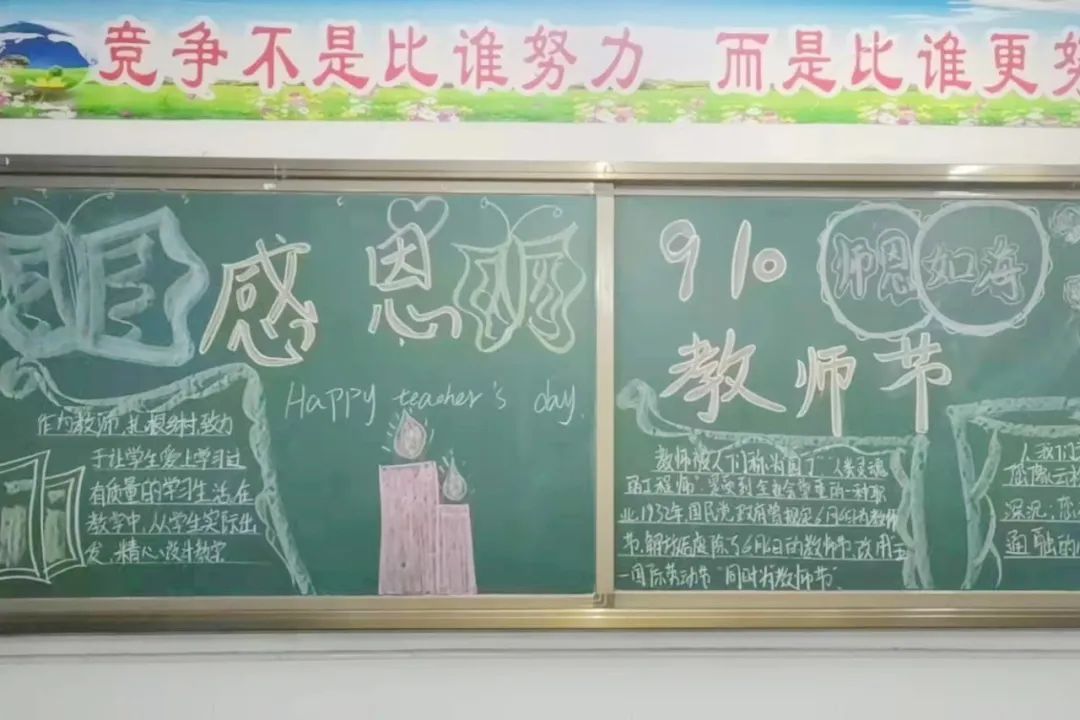 竞争不是比谁努力 而是比谁更努
感恩
Happy teacher's day.
作为教师,扎根乡村,致力
于让学生爱上学习过
有质量的学习生活,在
教学中,从学生实际出
发,精心设计教学
910
师恩如海
教师节
教师被人们称为园丁"人类灵魂
的工程师"受到全社会尊重的一种职
业1932年国民党政府曾规定6月6日为教师
节,解放后废除了6月6日的教师节,改用五
一国际劳动节"同时为教师节"
人我们
深沉;恋